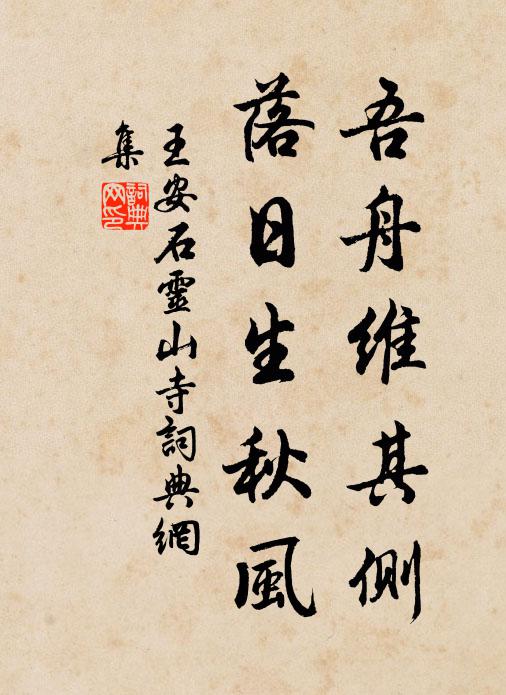 吾舟維其側
落日生秋風
王安石靈山寺詞典網
集
詞典
网印